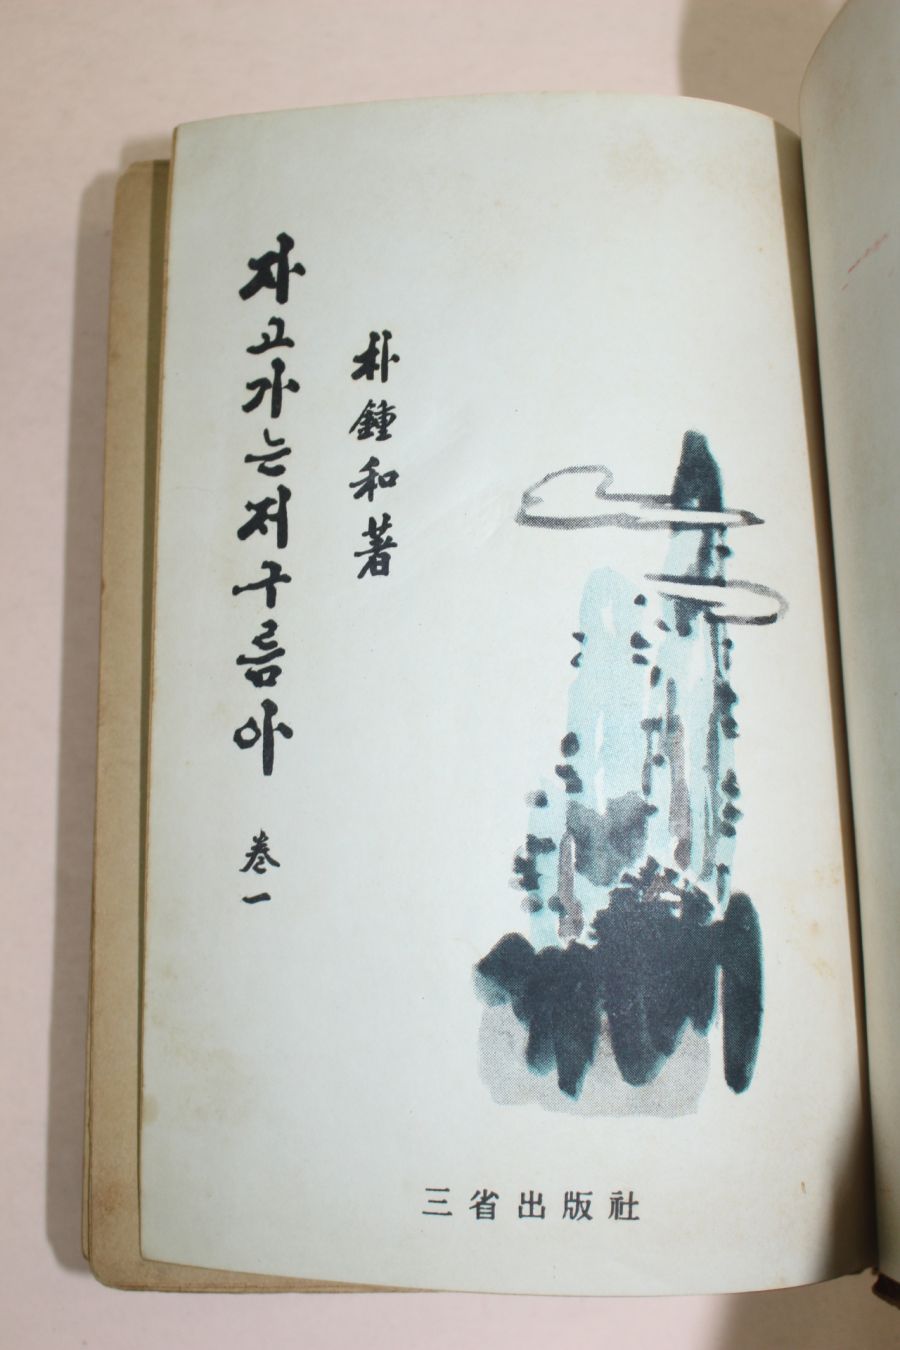 자고가는저구름아 卷一
朴鍾和著
三省出版社